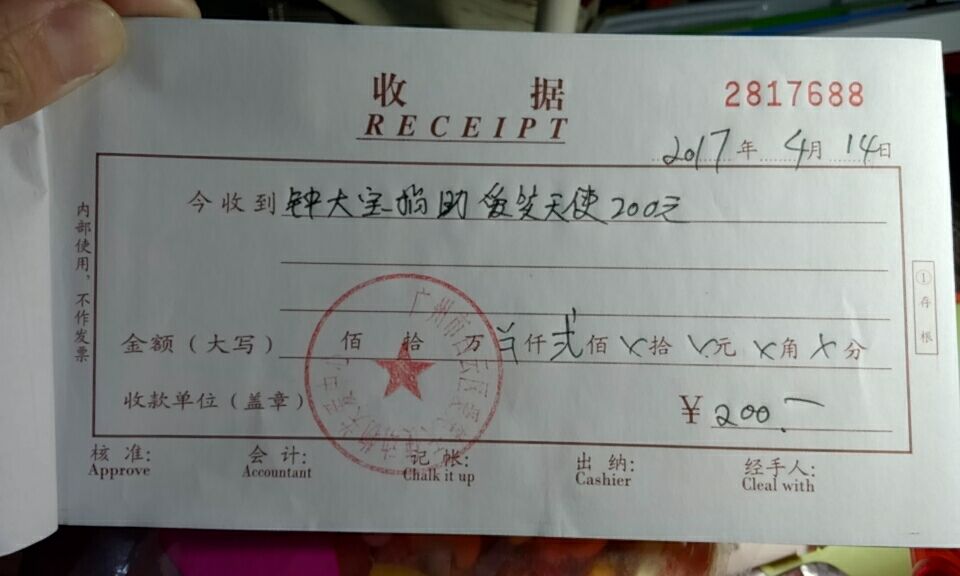 收 据
2817688
RECEIPT
2017年4月14日
今收到 钟大宝捐助爱笑天使200元
内部使用，不作发票
①存根
金额（大写） 佰 拾 万 仟 贰 佰 × 拾 × 元 × 角 × 分
收款单位（盖章） ¥ 200.一
广州市白云区
核 准: 会 计: 记 帐: 出 纳: 经手人:
Approve Accountant Chalk it up Cashier Cleal with